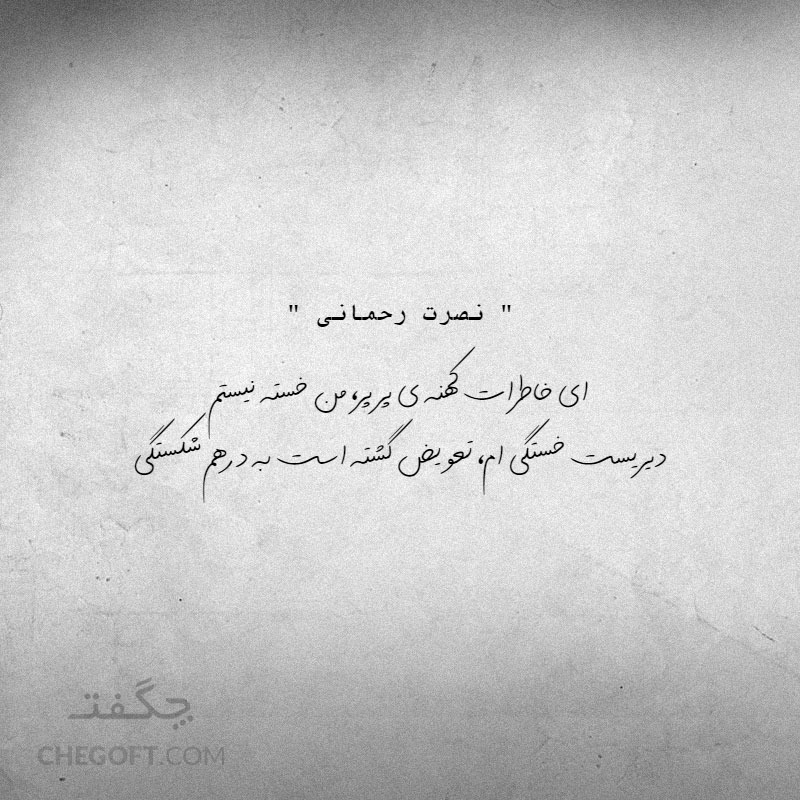 " نصرت رحمانی "
ای خاطرات کهنه ی پرپر، من خسته نیستم
دیریست خستگی ام، تعویض گشته است به درهم شکستگی
چگفت
CHEGOFT.COM